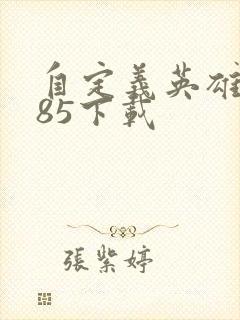 自定義英雄
85下載
張紫婷